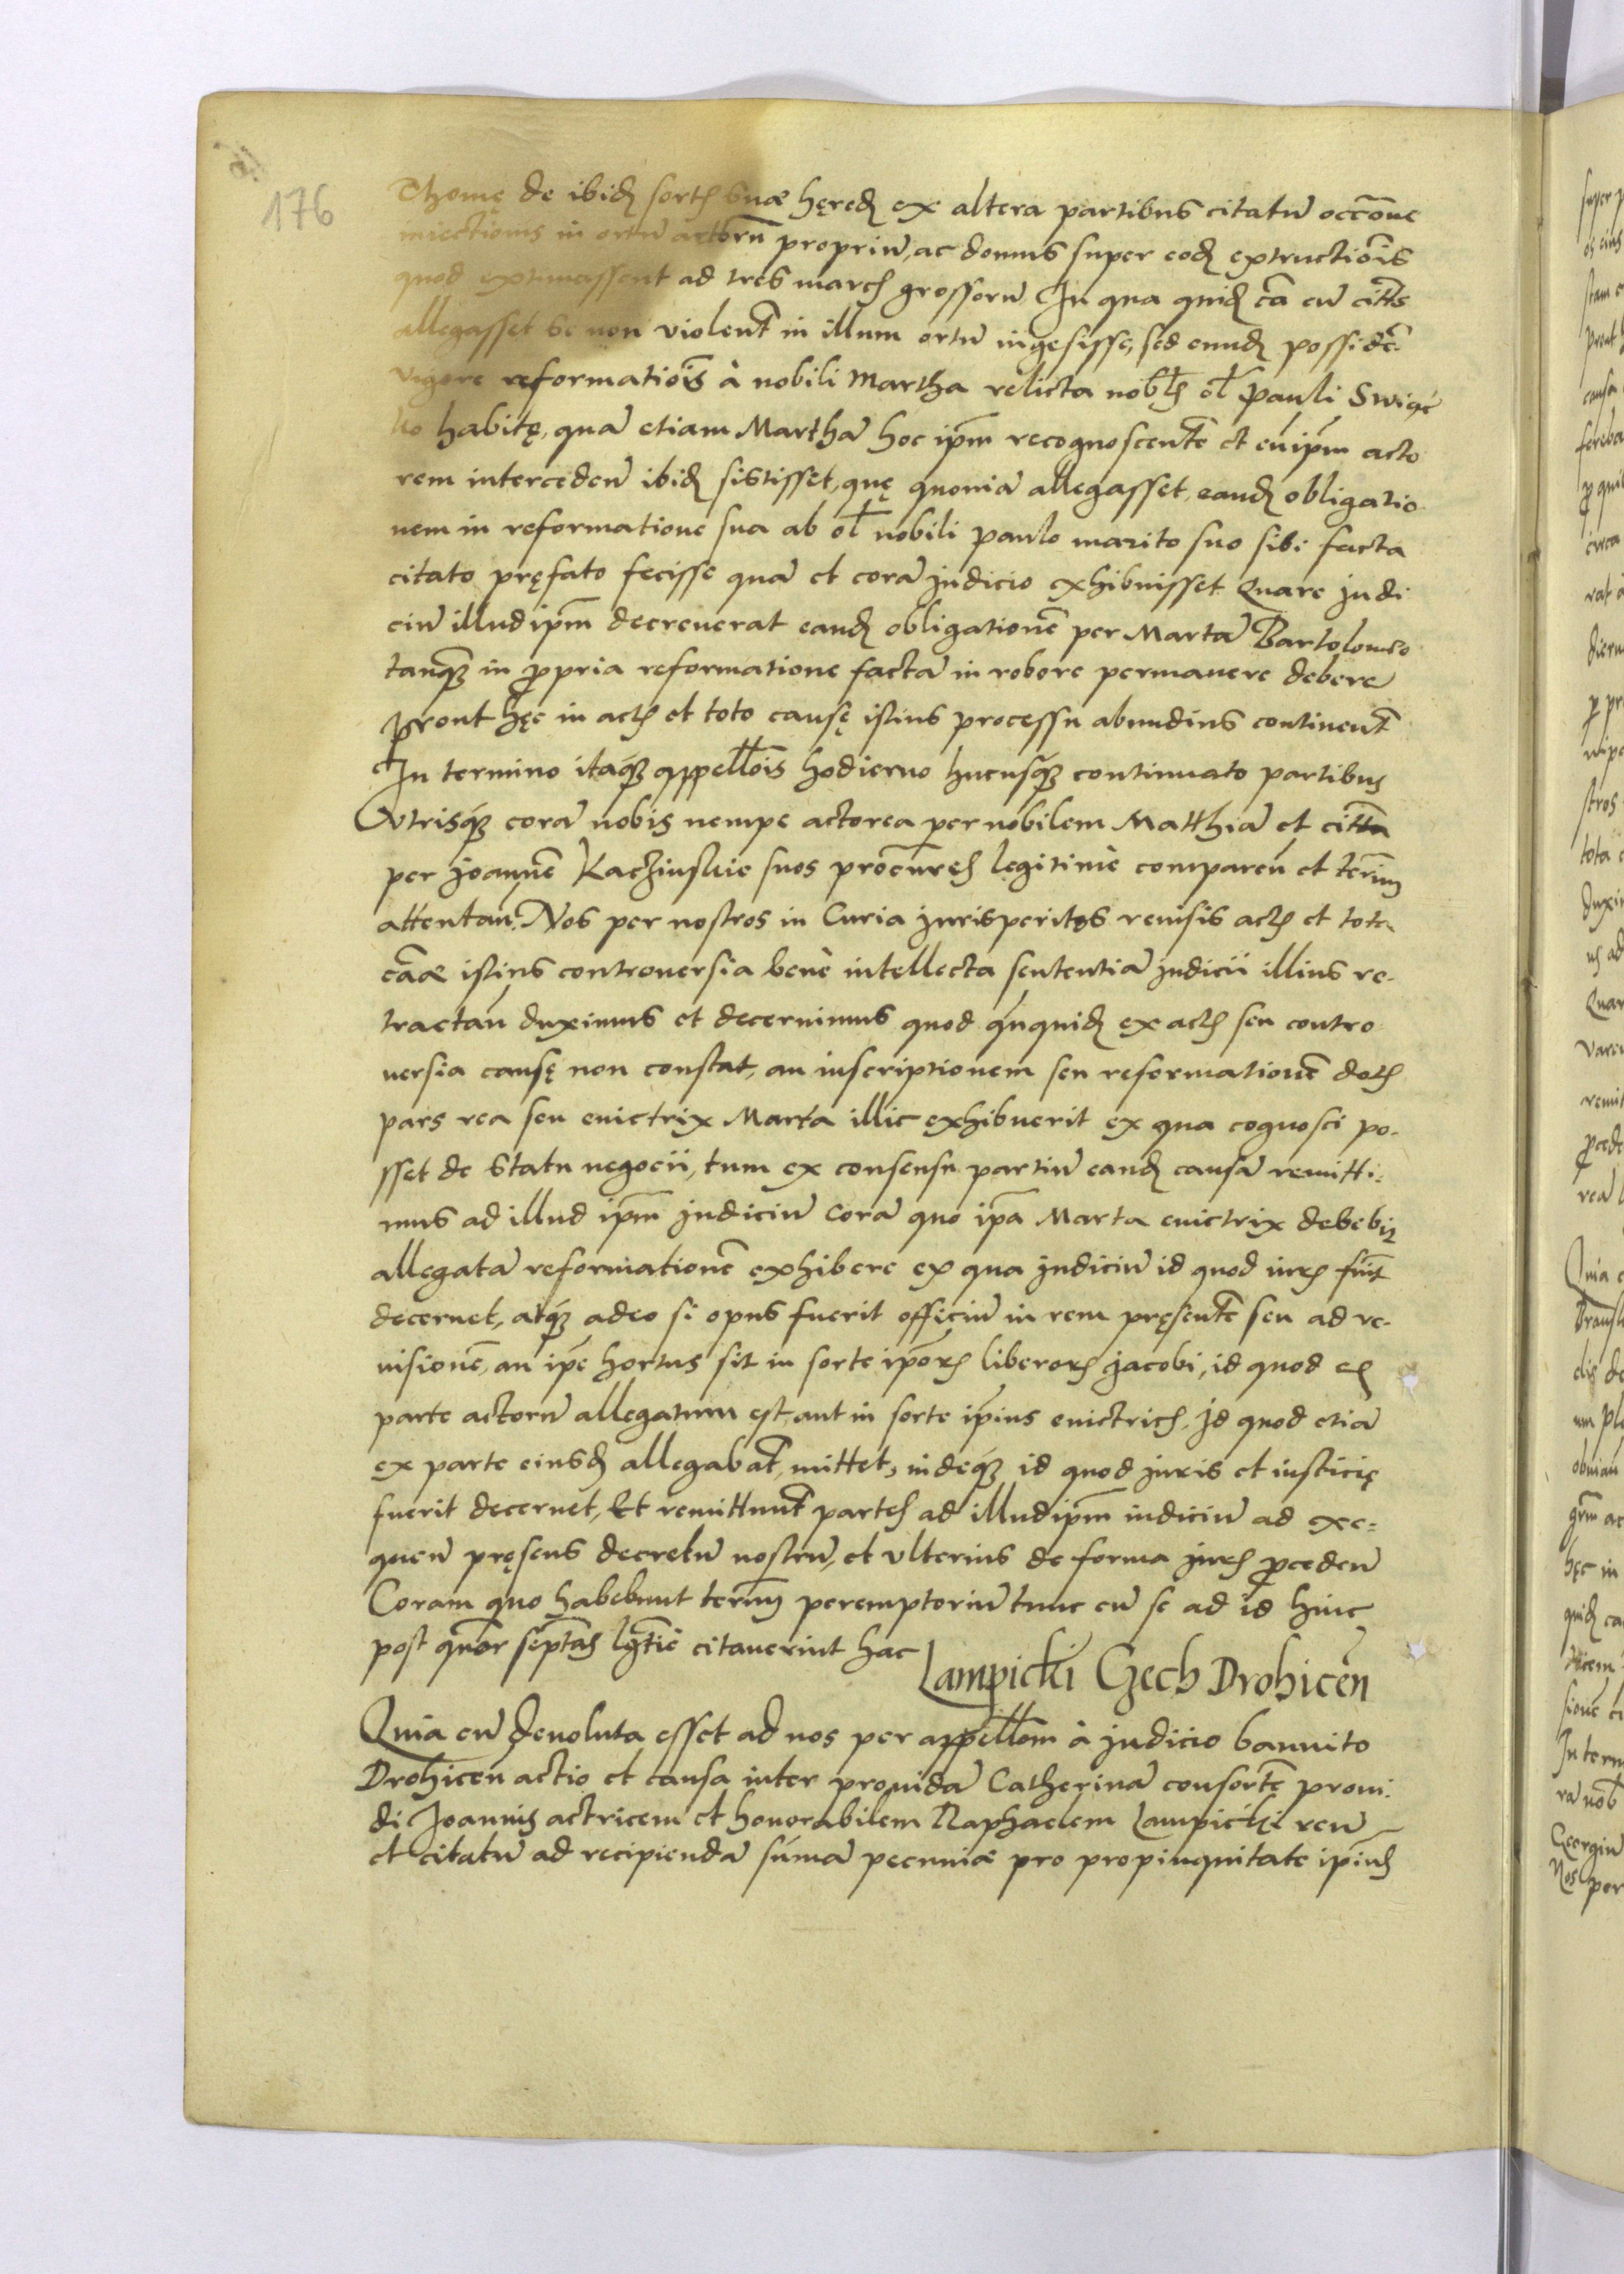 176
Thomę de ibid sortis suæ hęred ex altera partibus citatū occōne
iniectionis in ortū actorū propriū, ac domus super eod extructiōis
quod extimassent ad tres marcs grossorū In qua quid cā cū citts
allegasset se non violent in illum ortū ingesisse, sed eund possidē
vigore reformatiōis à nobili Martha relicta nobls ol Pauli Swigc
ko habitę, quā etiam Marthā hoc ipm recognoscentē et eūipm acto
rem interceden ibid sistisset, quę quoniā allegasset, eand obligatio
nem in reformatione sua ab ol nobili Paulo marito suo sibi facta
citato pręfato fecisse quā et corā judicio exhibuisset Quare judi
ciū illudipm decreuerat eand obligationē per Martā Bartolomeo
tanq̃ in propria reformatione factā in robore permanere debere
Prout hęc in actis et toto causę istius processu abundius continent
In termino itaq̃ appellōis hodierno hucusq̃ continuato partibus
Vtrisq̃ corā nobis nempe actorea per nobilem Matthiā et cittā
per Joannē Kaczinskie suos procures legitimè comparen et termm
attentan. Nos per nostros in Curia jurisperitos reuisis actis et tota
cāæ istius controuersia benè intellecta sententiā judicii illius re-
tractan duximus et decernimus quod ququid ex actis seu contro
uersia causę non constat, an inscriptionem seu reformationē dotis
pars rea seu euictrix Marta illic exhibuerit ex qua cognosci po-
sset de statu negocii, tum ex consensu partiū eand causā remitti-
mus ad illud ipm judiciū corā quo ipa Marta euictrix debebit
allegatā reformationē exhibere ex qua judiciū id quod iuris fuit
decernet, atq̃ adeo si opus fuerit officiū in rem pręsentē seu ad re-
uisionē, an ipe hortus sit in sorte ipors liberors Jacobi, id quod ex
parte actorū allegatum est, aut in sorte ipius euictricis, Id quod etiā
ex parte eiusd allegabat, mittet, indeq̃ id quod juris et iusticię
fuerit decernet, Et remittunt partes ad illudipm iudiciū ad exe=
quen pręsens decretū nostrū, et vlterius de forma juris proceden
Coram quo habebunt termm peremptoriū tunc cū se ad id hinc
post quor septas lgtiē citauerint hac
Lampicki Czech Drohicen
Quia cū deuoluta esset ad nos per appellom à judicio bannito
Drohicen actio et causa inter prouidā Catherinā consortē proui-
di Joannis actricem et honorabilem Raphaelem Lampicki reū
et citatū ad recipiendā sumā pecuniæ pro propinquitate ipius